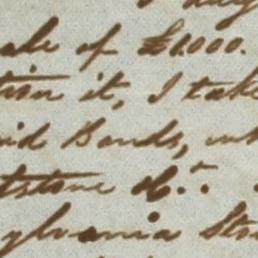 ale of £1,000.
tion it, I take
id Bonds, wh
tstone &c.
ylvania Str